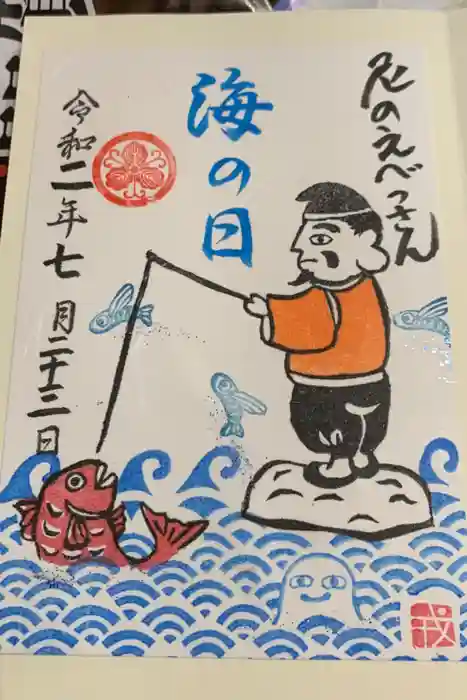 尼のえべっさん
海の日
令和二年七月二十二日
戎